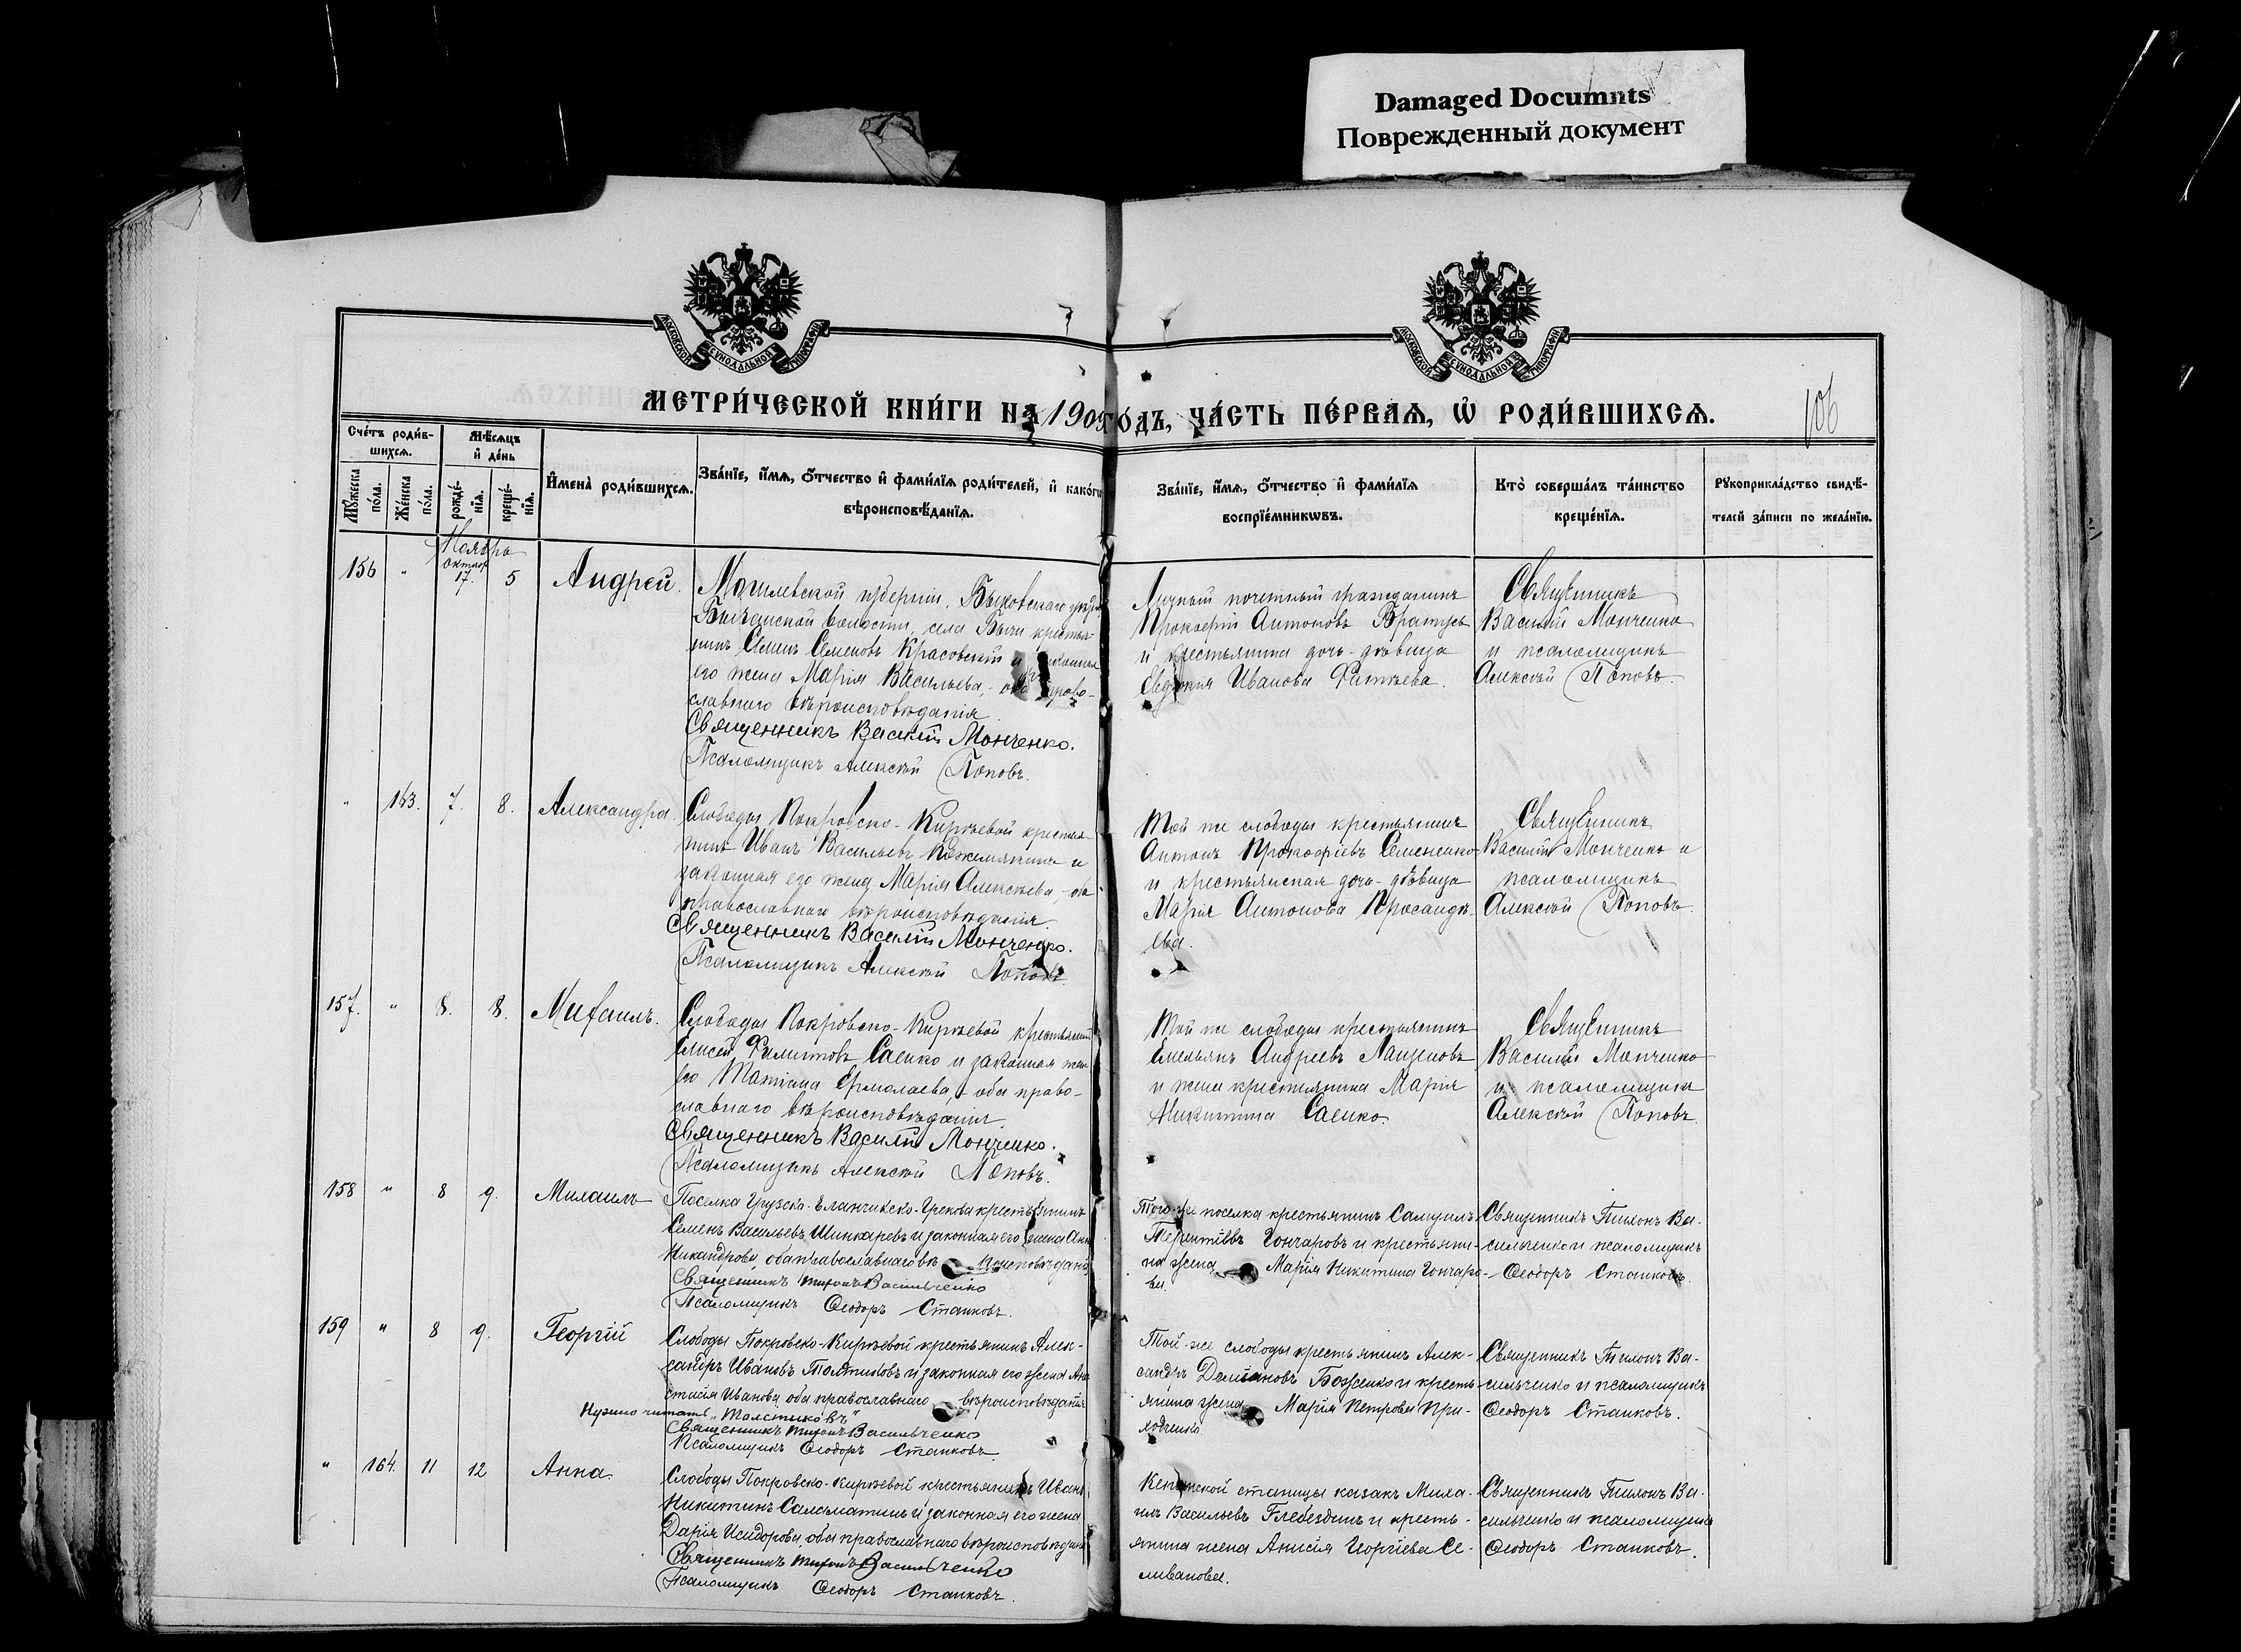 Damaged Documnts
Поврежденный документ
МОСКОВСКОЙ СѴНОДАЛЬНОЙ ТИПОГРАФІИ
МОСКОВСКОЙ СѴНОДАЛЬНОЙ ТИПОГРАФІИ
МЕТРИ́ЧЕСКОЙ КНИ́ГИ НА 190 ГО́ДЪ, ЧА́СТЬ ПЕ́РВАЯ, Ѡ РОДИ́ВШИХСЯ.
106
Сче́тъ роди́в-
шихся.
Мѣ́сяцъ
и де́нь
Мꙋ́жеска
по́ла.
Же́нска
по́ла.
рожде́-
нїя.
креще́-
нїя.
Имена̀ роди́вшихся.
Зва́нїе, и́мя, ѻ́тчество и фами́лїя роди́телей, и како́гѡ
вѣроисповѣ́данїя.
Зва́нїе, и́мя, ѻ́тчество и фами́лїя
воспрїе́мникѡвъ.
Кто̀ соверша́лъ та́инство
креще́нїя.
Рꙋкоприкла́дство свидѣ́-
телей за́писи по жела́нїю.
Ноябрь
156 " 17. 5 Андрей.
Могилевской губерніи, Быховскаго
волости, села крестья-
нинъ Семенъ Семеновъ Красовскій и законная
его жена Марія Васильева, - оба право-
славнаго вѣроисповѣданія.
Священникъ Василій Монченко.
Псаломщикъ Алексѣй Поповъ.
Личный почетный гражданинъ
Прокофій Антоновъ
и крестьянина дочь-дѣвица
Евдокія Иванова
Священникъ
Василій Монченко
и псаломщикъ
Алексѣй Поповъ.
" 163. 7. 8. Александра.
Слободы Покровско-Кирѣевой крестья-
нинъ Иванъ Васильевъ Кожемякинъ и
законная его жена Марія Алексѣева, - оба
православнаго вѣроисповѣданія.
Священникъ Василій Монченко.
Псаломщикъ Алексѣй Поповъ.
Той же слободы крестьянинъ
Антонъ Прокофіевъ Семененко
и крестьянская дочь-дѣвица
Марія Антонова
ева.
Священникъ
Василій Монченко и
псаломщикъ
Алексѣй Поповъ.
157. " 8. 8. Михаилъ.
Слободы Покровско-Кирѣевой крестьянинъ
Елисей Филиповъ Саенко и законная жена
его Татіана Ермолаева, - оба право-
славнаго вѣроисповѣданія.
Священникъ Василій Монченко.
Псаломщикъ Алексѣй Поповъ.
Той же слободы крестьянинъ
Емельянъ Андреевъ
и жена крестьянина Марія
Никитина Саенко.
Священникъ
Василій Монченко
и псаломщикъ
Алексѣй Поповъ.
158 " 8 9. Михаилъ
Поселка Грузско-Еланчикско-Грекова крестьянинъ
Семенъ Васильевъ Шинкаревъ и законная его жена Анна
Никандрова, оба православнаго вѣроисповѣданія
Священникъ Тихонъ Васильченко
Псаломщикъ Ѳеодоръ Станковъ.
Того-же поселка крестьянинъ Самуилъ
Терентіевъ Гончаровъ и крестьяни-
на жена Марія Никитина Гончаро-
ва.
Священникъ Тихонъ Ва-
сильченко и псаломщикъ
Ѳеодоръ Станковъ.
159 " 8 9. Георгій
Слободы Покровско-Кирѣевой крестьянинъ Алек-
сандръ Ивановъ Толтиковъ и законная его жена Ана-
стасія Иванова, оба православнаго вѣроисповѣданія
Нужно читать „Толстиковъ"
Священникъ Тихонъ Васильченко
Псаломщикъ Ѳеодоръ Станковъ.
Той-же слободы крестьянинъ Алек-
сандръ Демьяновъ Боженко и кресть-
янина жена Марія Петрова При-
ходченко.
Священникъ Тихонъ Ва-
сильченко и псаломщикъ
Ѳеодоръ Станковъ.
" 164. 11 12 Анна.
Слободы Покровско-Кирѣевой крестьянинъ Иванъ
Никитинъ Саламатинъ и законная его жена
Дарія Исидорова, оба православнаго вѣроисповѣданія
Священникъ Тихонъ Васильченко
Псаломщикъ Ѳеодоръ Станковъ.
станицы казакъ Миха-
илъ Васильевъ и кресть-
янина жена Анисія Георгіева Се-
ливанова.
Священникъ Тихонъ Ва-
сильченко и псаломщикъ
Ѳеодоръ Станковъ.